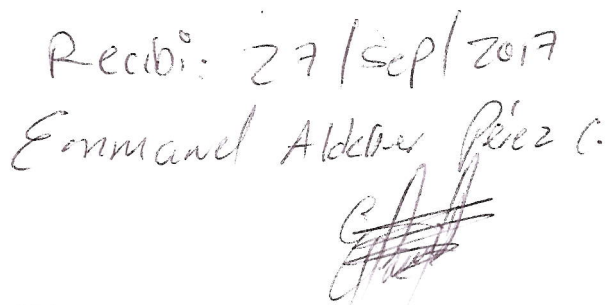 Recibi: 27/sep/2017
Emmanuel Pérez C.